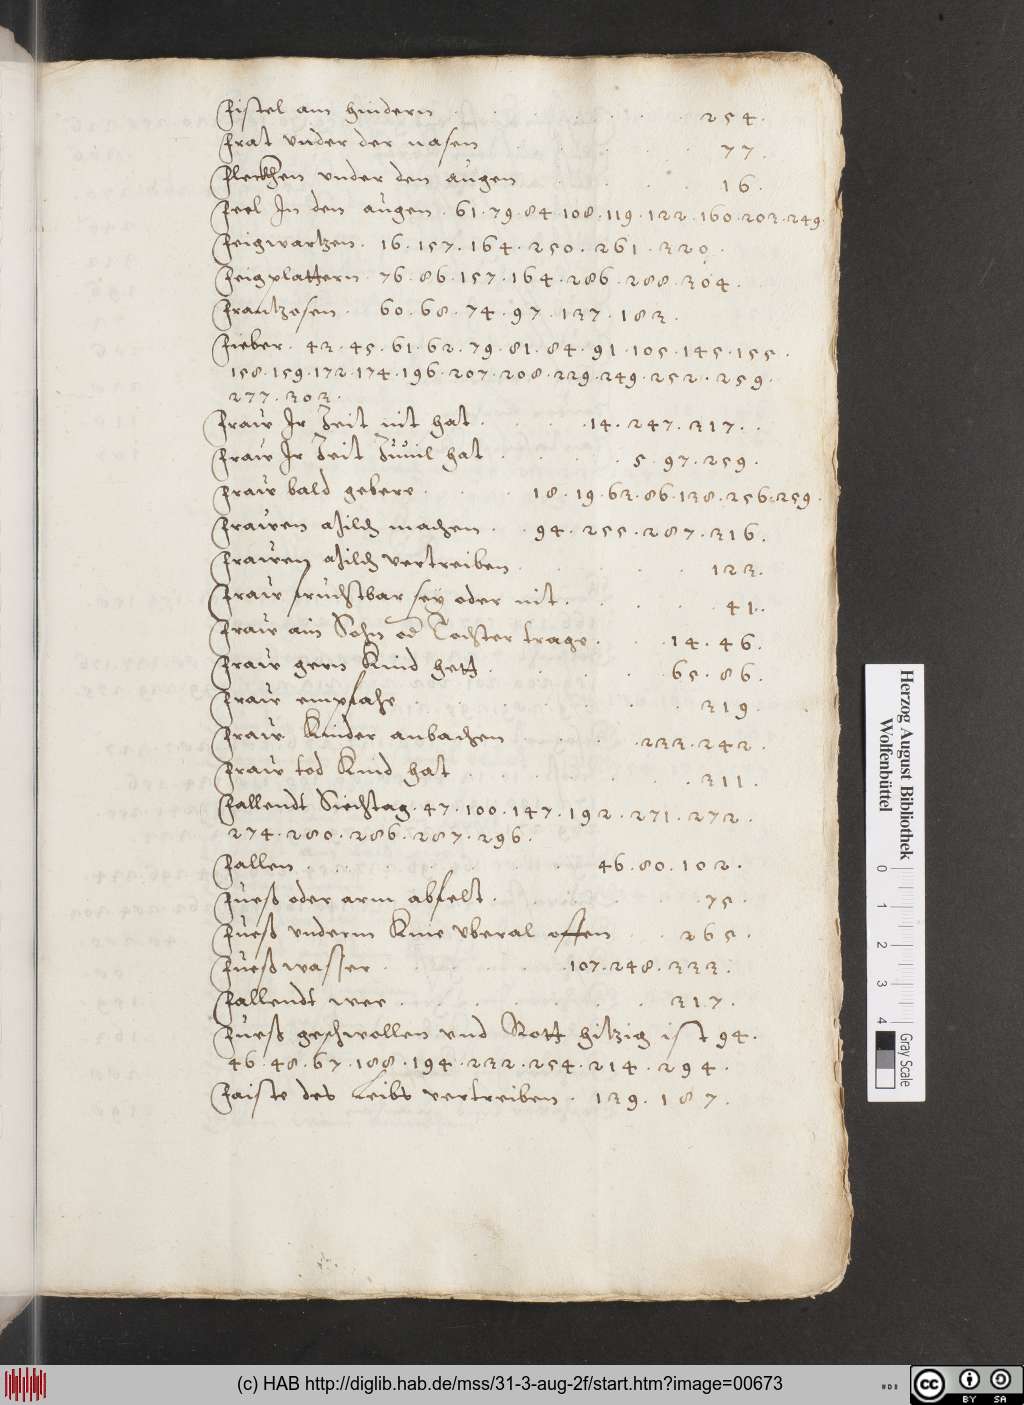 Fistel am hindern . . . . . . 254.
Frat vnder der nasen . . . . 77.
Fleckhen vnder den augen . . . . 16.
Feel In den augen . 61 . 79 . 84 . 108 . 119 . 122 . 160 . 203 . 249.
Feigwartzen . 16 . 157 . 164 . 250 . 261 . 320 .
Feigplattern . 76 . 86 . 157 . 164 . 286 . 288 . 304 .
Frantzosen . 60 . 68 . 74 . 97 . 137 . 183 .
Fieber . 43 . 45 . 61 . 62 . 79 . 81 . 84 . 91 . 105 . 145 . 155 .
158 . 159 . 172 . 174 . 196 . 207 . 208 . 229 . 249 . 252 . 259 .
277 . 303 .
Fraw Ir Zeit nit hat . . . . 14 . 247 . 317 . .
Fraw Ir Zeit Zuuil hat . . . . 5 . 97 . 259 .
Fraw bald gebere . . . 18 . 19 . 63 . 86 . 138 . 256 . 259 .
Frawen Milch machen . . 94 . 255 . 287 . 316 .
Frawen Milch vertreiben . . . . . 123 .
Fraw fruchtbar sey oder nit . . . . 41 .
Fraw ain Sohn od Tochter trage . . 14 . 46 .
Fraw gern Kind hett . . . . 65 . 86 .
Fraw empfahe . . . . . . 319 .
Fraw Kinder anbachen . . . . 233 . 242 .
Fraw tod Kind hat . . . . . 311 .
Fallendt Siechtag . 47 . 100 . 147 . 192 . 271 . 272 .
274 . 280 . 286 . 287 . 296 .
Fallen . . . . . . 46 . 80 . 102 .
Fueß oder arm abfelt . . . . . 75 .
Fueß vnderm Knie vberal offen . . 265 .
Fueßwasser . . . . . 107 . 248 . 333 .
Fallendt wee . . . . . . 317 .
Fueß geschwollen vnd Rott hitzig ist 94 .
46 . 48 . 67 . 188 . 194 . 232 . 254 . 214 . 294 .
Faiste des Leibs vertreiben . 139 . 187 .
Herzog August Bibliothek
Wolfenbüttel
0 1 2 3 4
Gray Scale
(c) HAB http://diglib.hab.de/mss/31-3-aug-2f/start.htm?image=00673
cc BY SA